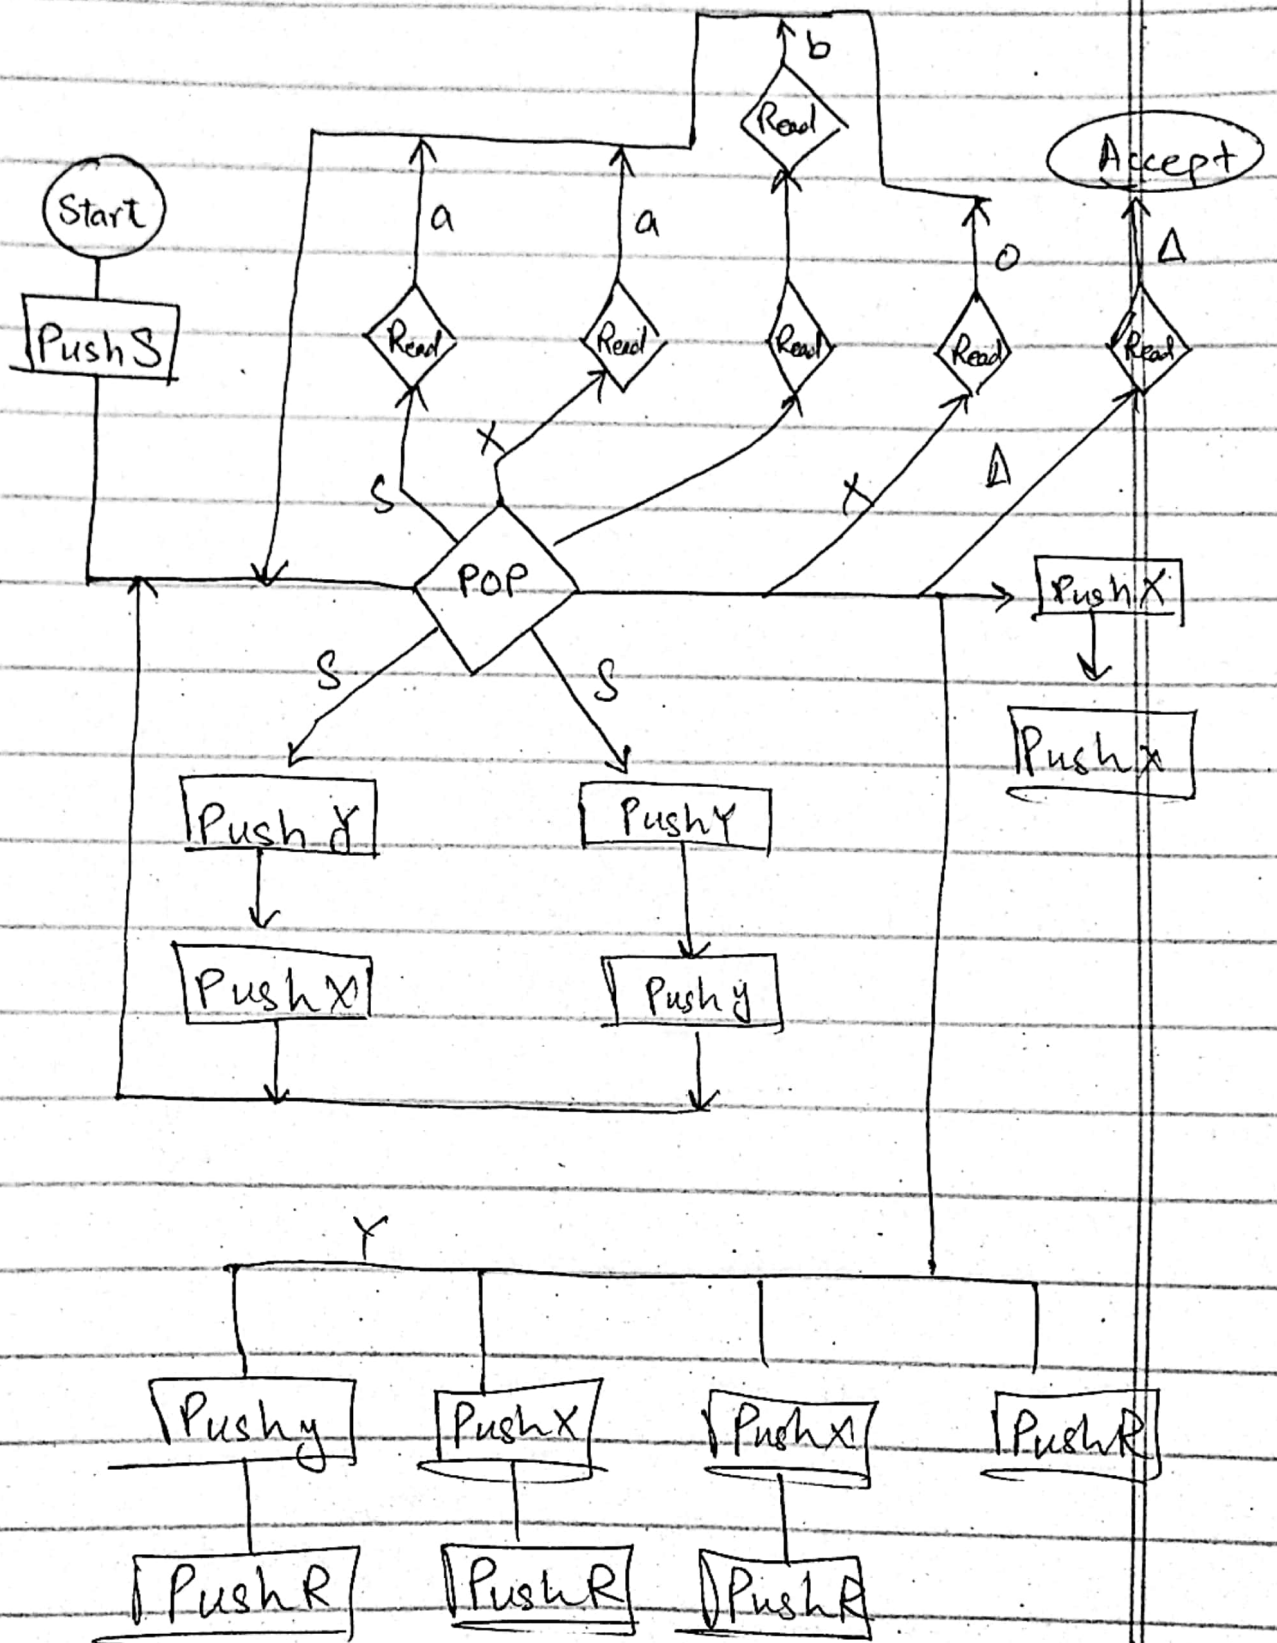 b
Read
Accept
Start
a
a
o
Δ
Push S
Read
Read
Read
Read
Read
X
S
X
Δ
POP
Push X
S
S
Push x
Push Y
Push Y
Push X
Push y
Y
Push y
Push X
Push X
Push R
Push R
Push R
Push R